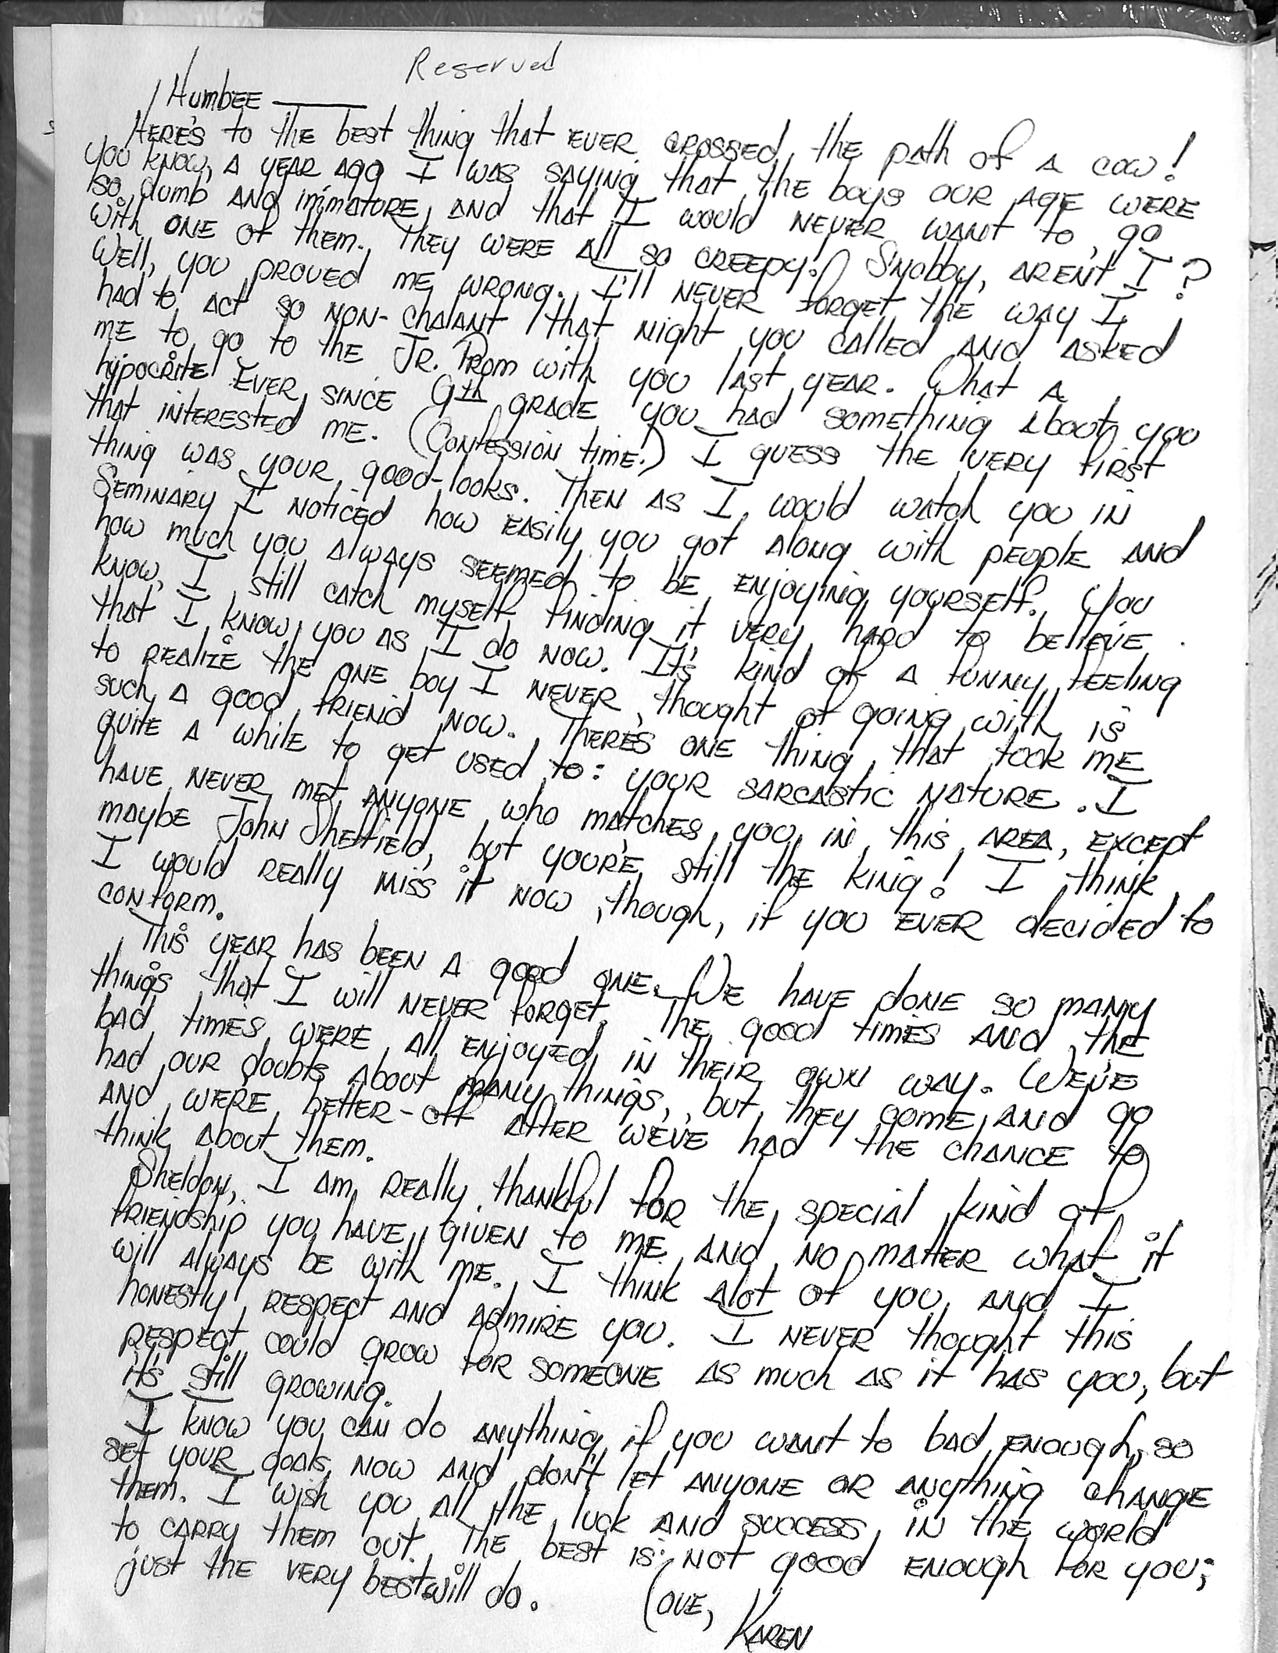 Reserved
Humbee
Here's to the best thing that ever crossed the path of a cow!
You know, a year ago I was saying that the boys our age were
so dumb and immature, and that I would never want to go
with one of them. They were all so creepy! Snobby, aren't I?
Well, you proved me wrong. I'll never forget the way I
had to act so non-chalant that night you called and asked
me to go to the Jr. Prom with you last year. What a
hypocrite! Ever since 9th grade you had something about you
that interested me. (Confession time!) I guess the very first
thing was your good-looks. Then as I would watch you in
Seminary I noticed how easily you got along with people and
how much you always seemed to be enjoying yourself. You
know, I still catch myself finding it very hard to believe
that I know you as I do now. It's kind of a funny feeling
to realize the one boy I never thought of going with is
such a good friend now. There's one thing that took me
quite a while to get used to: your sarcastic nature. I
have never met anyone who matches you in this area, except
maybe John Sheffield, but you're still the king! I think
I would really miss it now, though, if you ever decided to
conform.
This year has been a good one. We have done so many
things that I will never forget. The good times and the
bad times were all enjoyed in their own way. We've
had our doubts about many things, but they come and go
and we're better-off after we've had the chance to
think about them.
Sheldon, I am really thankful for the special kind of
friendship you have given to me and no matter what it
will always be with me. I think alot of you and I
honestly respect and admire you. I never thought this
respect could grow for someone as much as it has you, but
it's still growing.
I know you can do anything if you want to bad enough, so
set your goals now and don't let anyone or anything change
them. I wish you all the luck and success in the world
to carry them out. The best is not good enough for you;
just the very best will do.
Love,
Karen